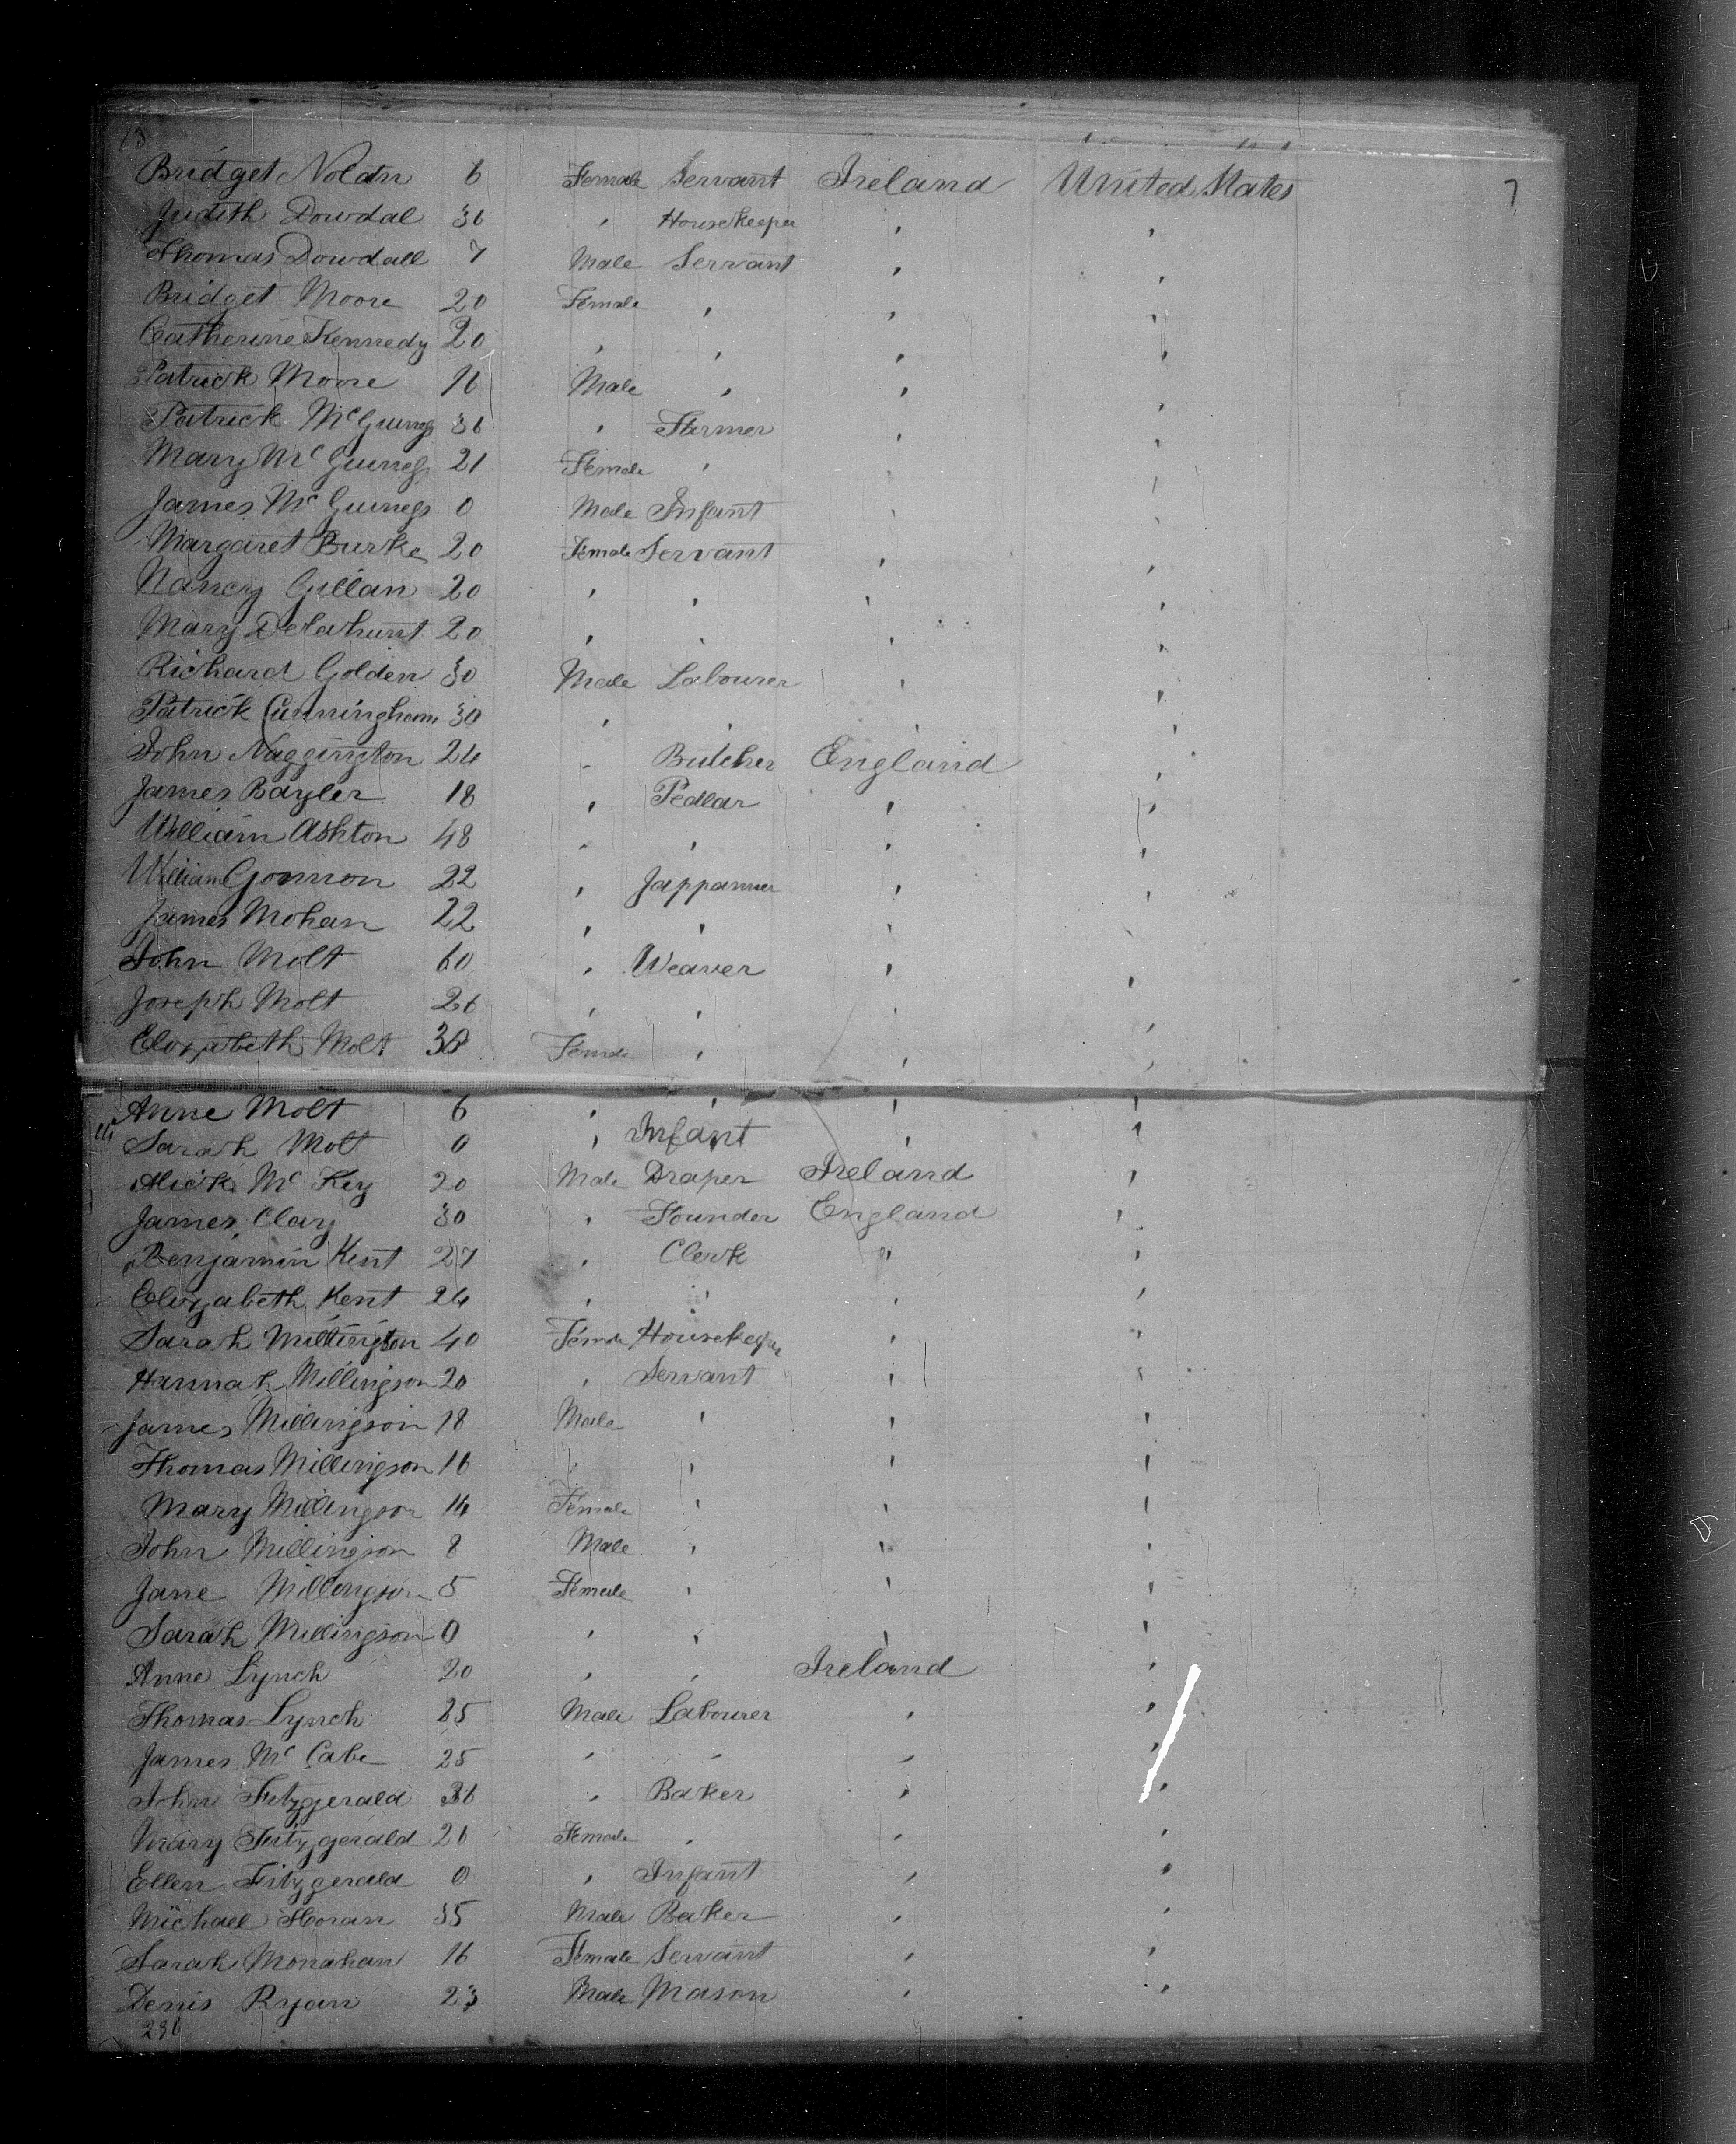 13
Bridget Nolan 6 Female Servant Ireland United States 7
Judith Dowdal 36 " Housekeeper " "
Thomas Dowdall 7 Male Servant " "
Bridget Moore 20 Female " " "
Catherine Kennedy 20 " " " "
Patrick Moore 16 Male " " "
Patrick McGuiness 36 " Farmer " "
Mary McGuiness 21 Female " " "
James McGuiness 0 Male Infant " "
Margaret Burke 20 Female Servant " "
Nancy Gillan 20 " " " "
Mary Delahunt 20 " " " "
Richard Golden 30 Male Labourer " "
Patrick Cunningham 30 " " " "
John Naggington 24 " Butcher England "
James Bayler 18 " Pedlar " "
William Ashton 48 " " " "
William 22 " Jappanner " "
James Mohan 22 " " " "
John Molt 60 " Weaver " "
Joseph Molt 26 " " " "
Elizabeth Molt 30 Female " " "
Anne Molt 6 " " " "
Sarah Molt 0 " Infant " "
Mick McKey 20 Male Draper Ireland "
James Clay 30 " Founder England "
Benjamin Kent 27 " Clerk " "
Elizabeth Kent 24 " " " "
Sarah Millington 40 Female Housekeeper " "
Hannah Millingson 20 " Servant " "
James Millingson 18 Male " " "
Thomas Millingson 16 " " " "
Mary Millingson 14 Female " " "
John Millingson 8 Male " " "
Jane Millingson 5 Female " " "
Sarah Millingson 0 " " " "
Anne Lynch 20 " " Ireland "
Thomas Lynch 25 Male Labourer " "
James McCabe 25 " " " "
John Fitzgerald 36 " Baker " "
Mary Fitzgerald 26 Female " " "
Ellen Fitzgerald 0 " Infant " "
Michael Horan 35 Male Baker " "
Sarah Monahan 16 Female Servant " "
Denis Ryan 23 Male Mason " "
236